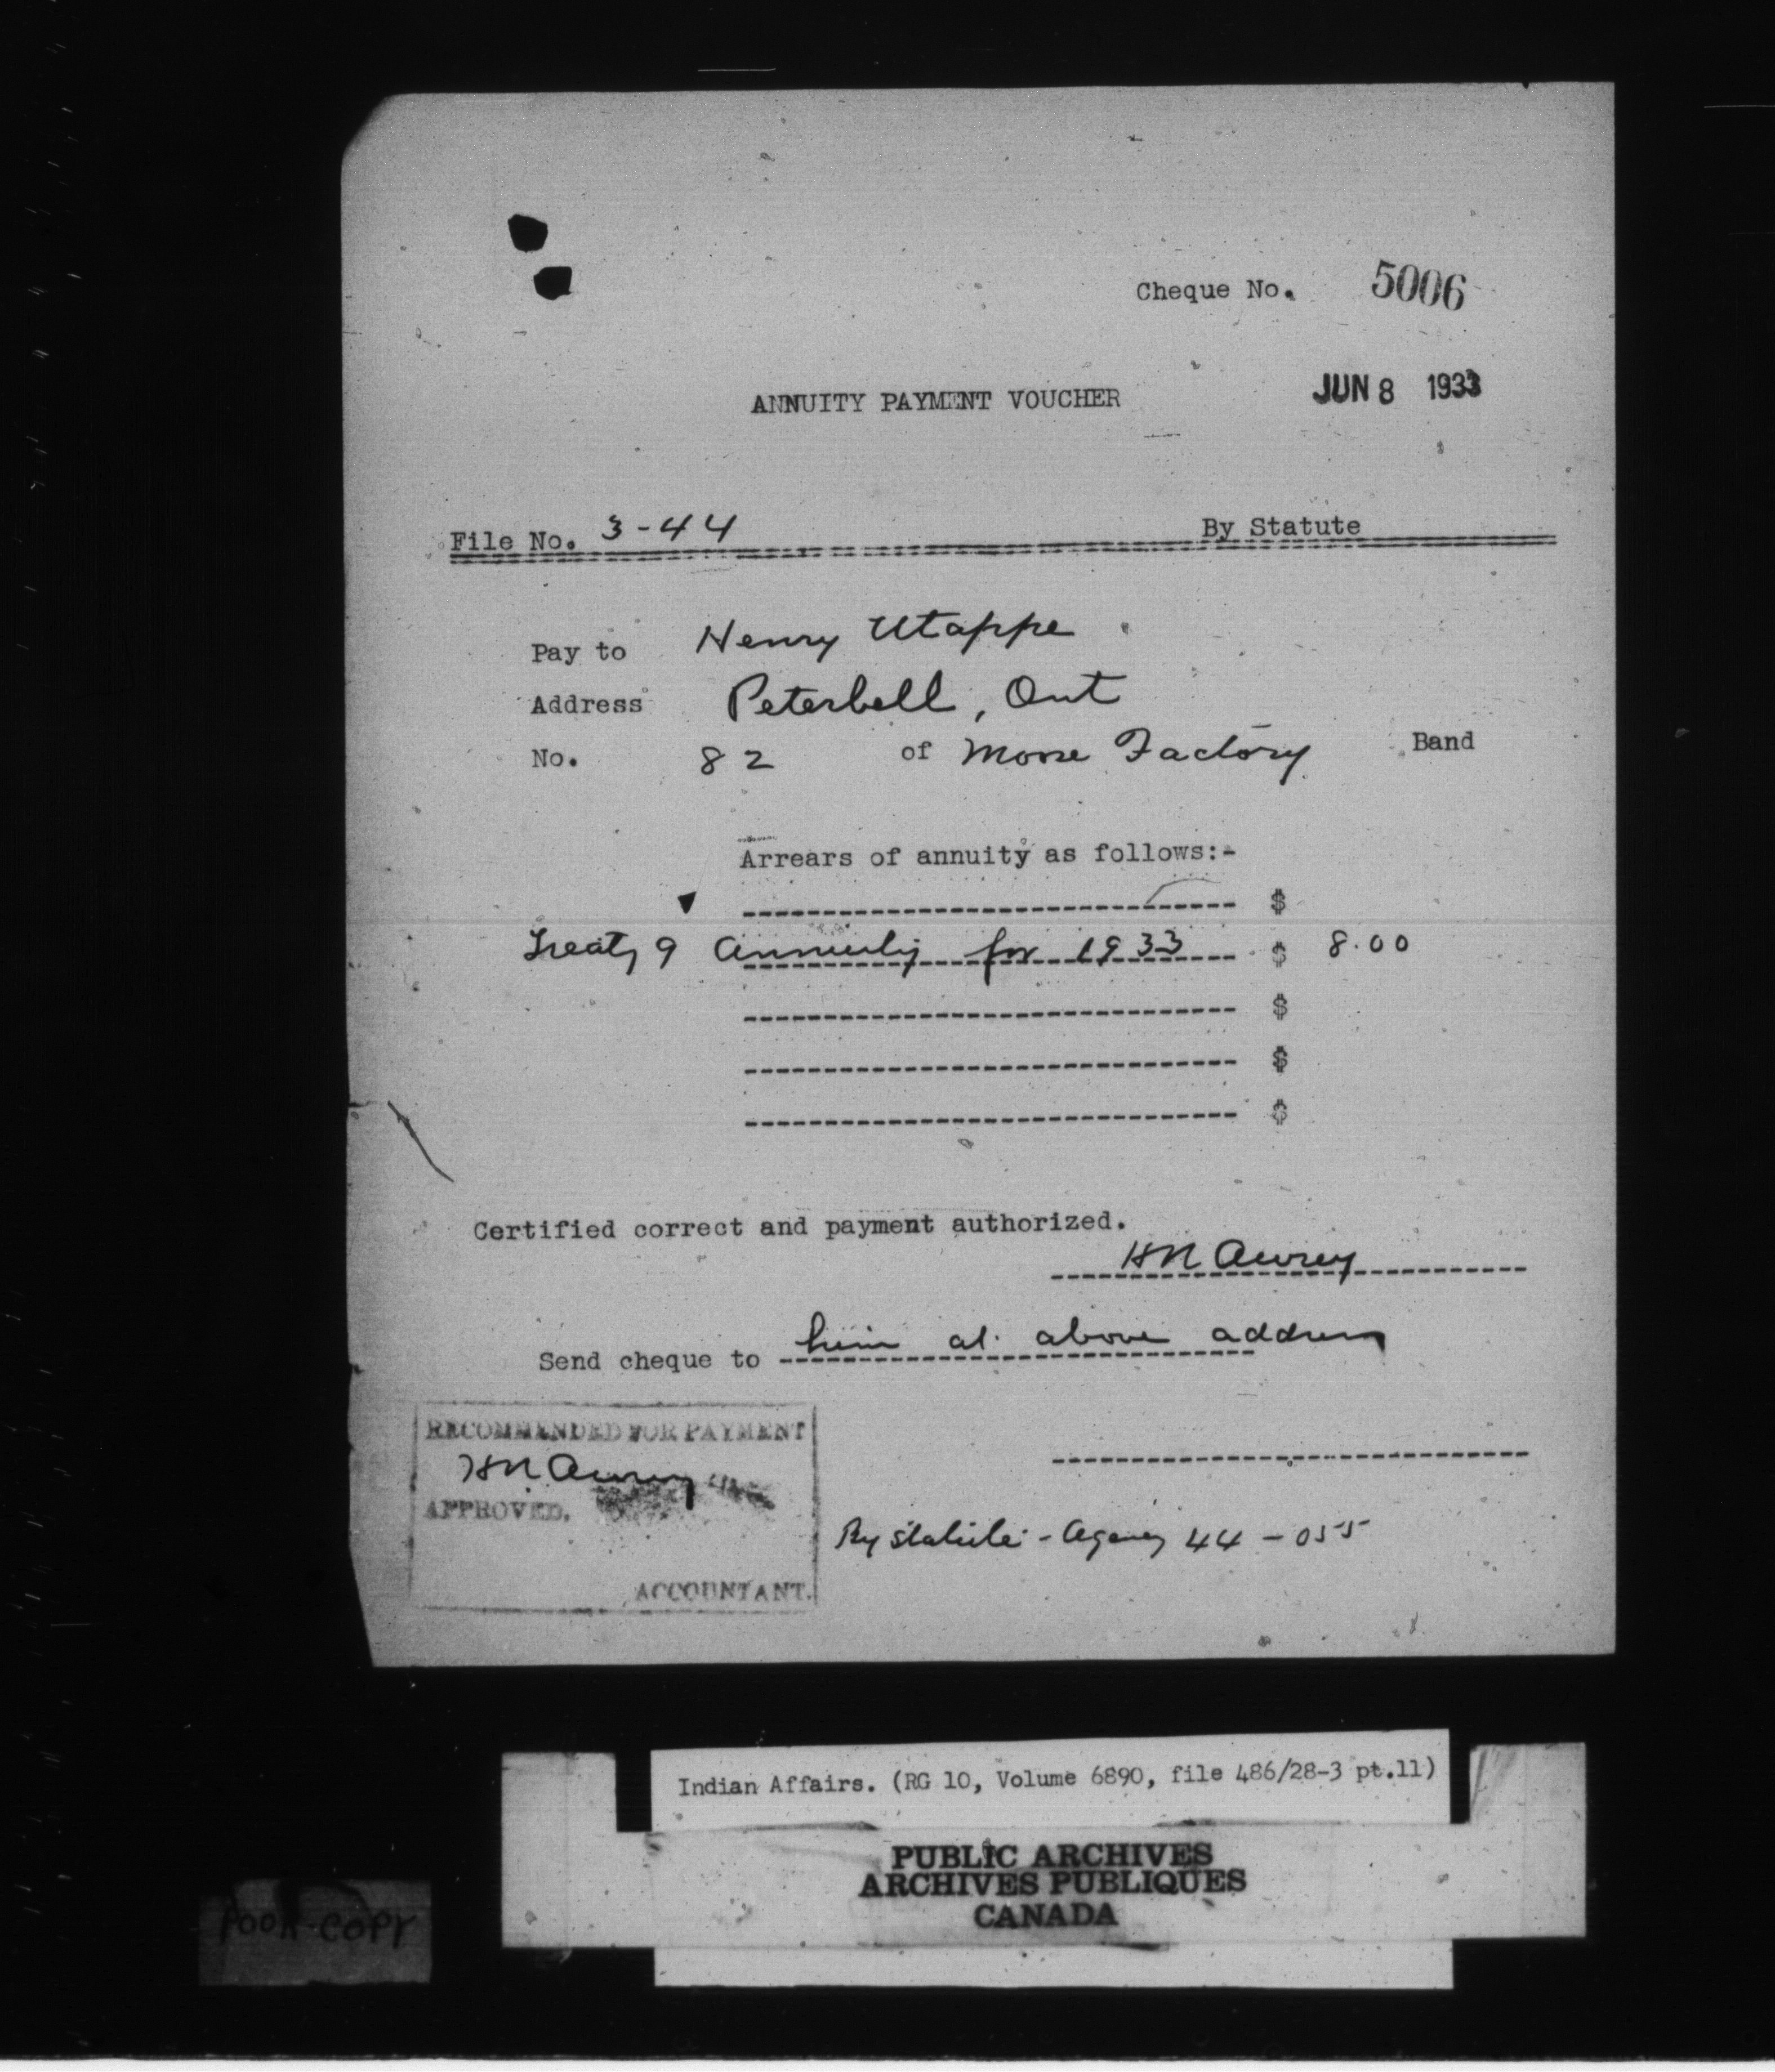 Cheque No. 5006
ANNUITY PAYMENT VOUCHER JUN 8 1933
File No. 3-44 By Statute
Pay to Henry Utappe
Address Peterbell, Ont
No. 82 of Moose Factory Band
Arrears of annuity as follows:-
$
Treaty 9 Annuity for 1933 $ 8.00
$
$
$
Certified correct and payment authorized.
HN Awrey
Send cheque to him at above address
RECOMMENDED FOR PAYMENT
HN Awrey
APPROVED.
By Statute - Agency 44 - 055
ACCOUNTANT.
Indian Affairs. (RG 10, Volume 6890, file 486/28-3 pt.11)
PUBLIC ARCHIVES
ARCHIVES PUBLIQUES
CANADA
POOR COPY